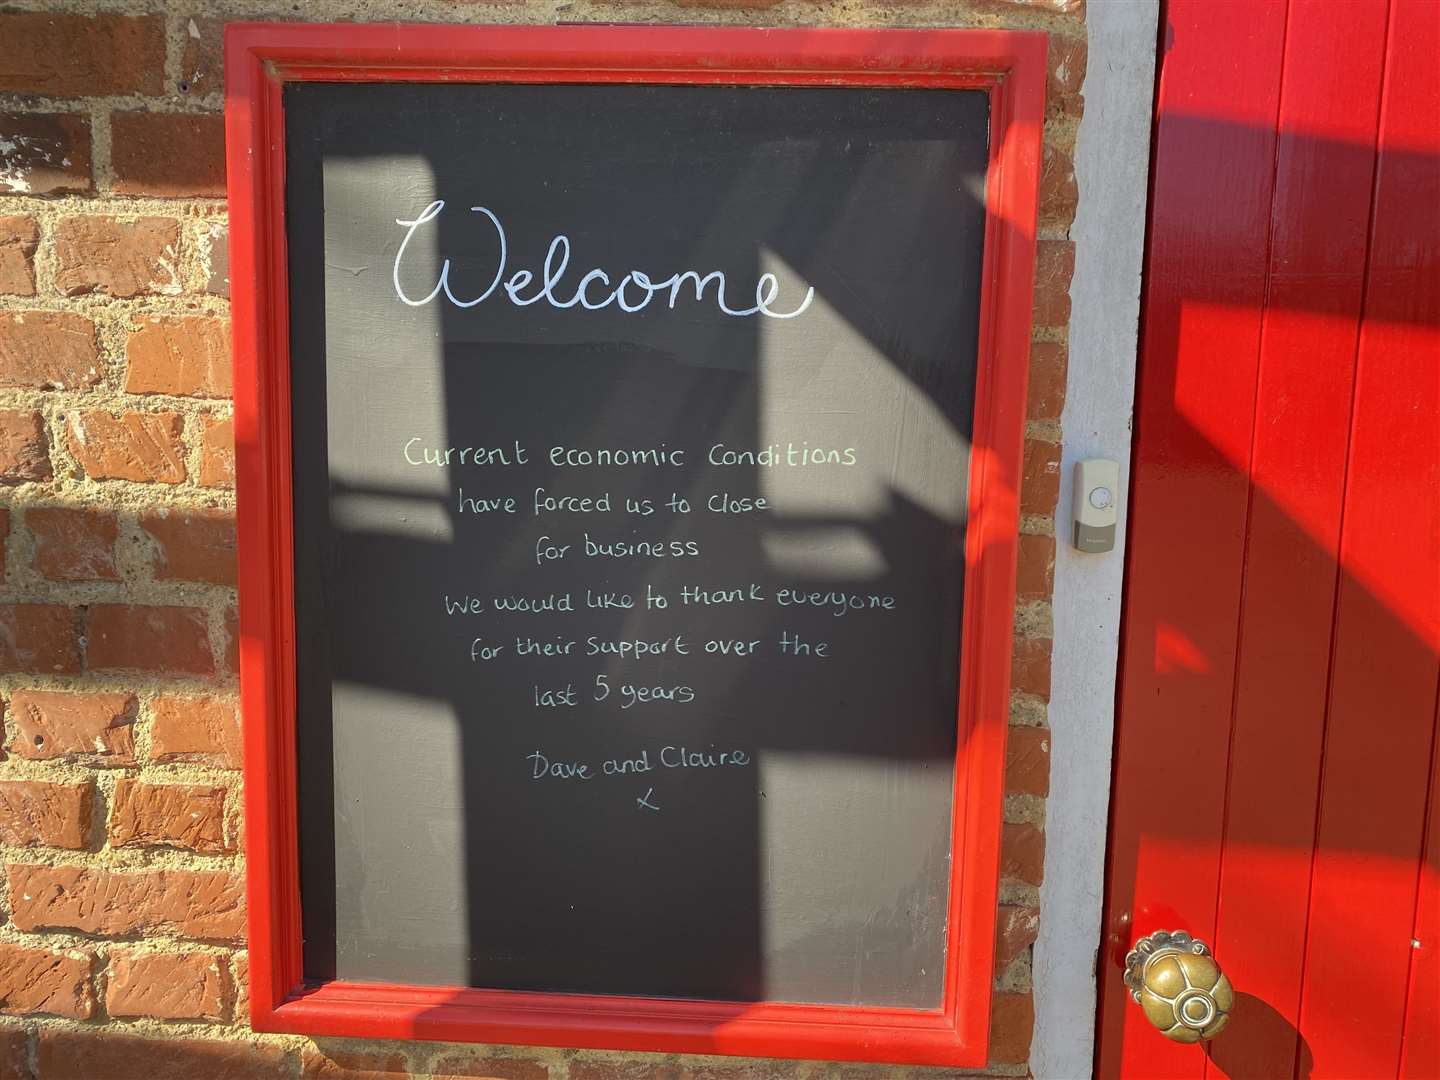 Welcome
Current economic Conditions
have forced us to Close
for business
We would like to thank everyone
for their support over the
last 5 years
Dave and Claire
x